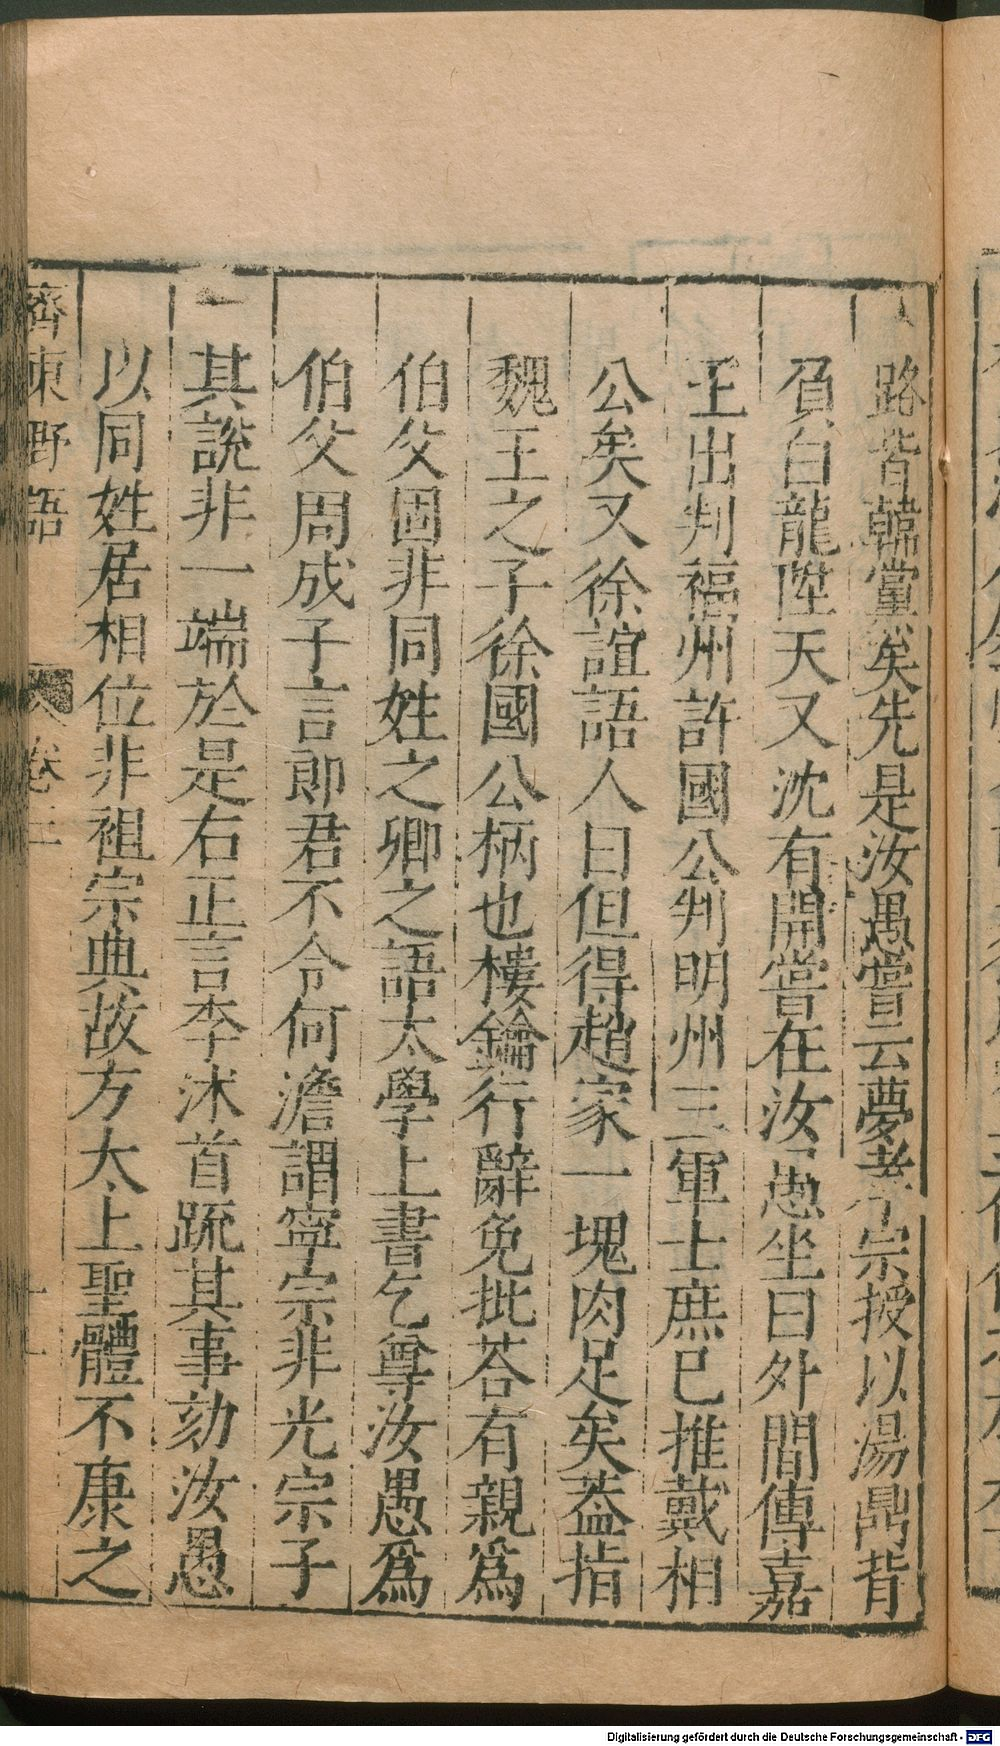 路皆韓黨矣先是汝愚嘗云夢孝宗授以湯鼎背
負白龍陞天又沈有開嘗在汝愚坐曰外間傳嘉
王出判福州許國公判明州三軍士庶巳推戴相
公矣又徐誼語人曰但得趙家一塊肉足矣葢指
魏王之子徐國公柄也樓鑰行辭免批荅有親爲
伯父固非同姓之卿之語太學上書乞尊汝愚爲
伯父周成子言郎君不令何澹謂寧宗非光宗子
其說非一端於是右正言李沐首疏其事劾汝愚
以同姓居相位非祖宗典故方太上聖體不康之
齊東野語 卷三
Digitalisierung gefördert durch die Deutsche Forschungsgemeinschaft - DFG